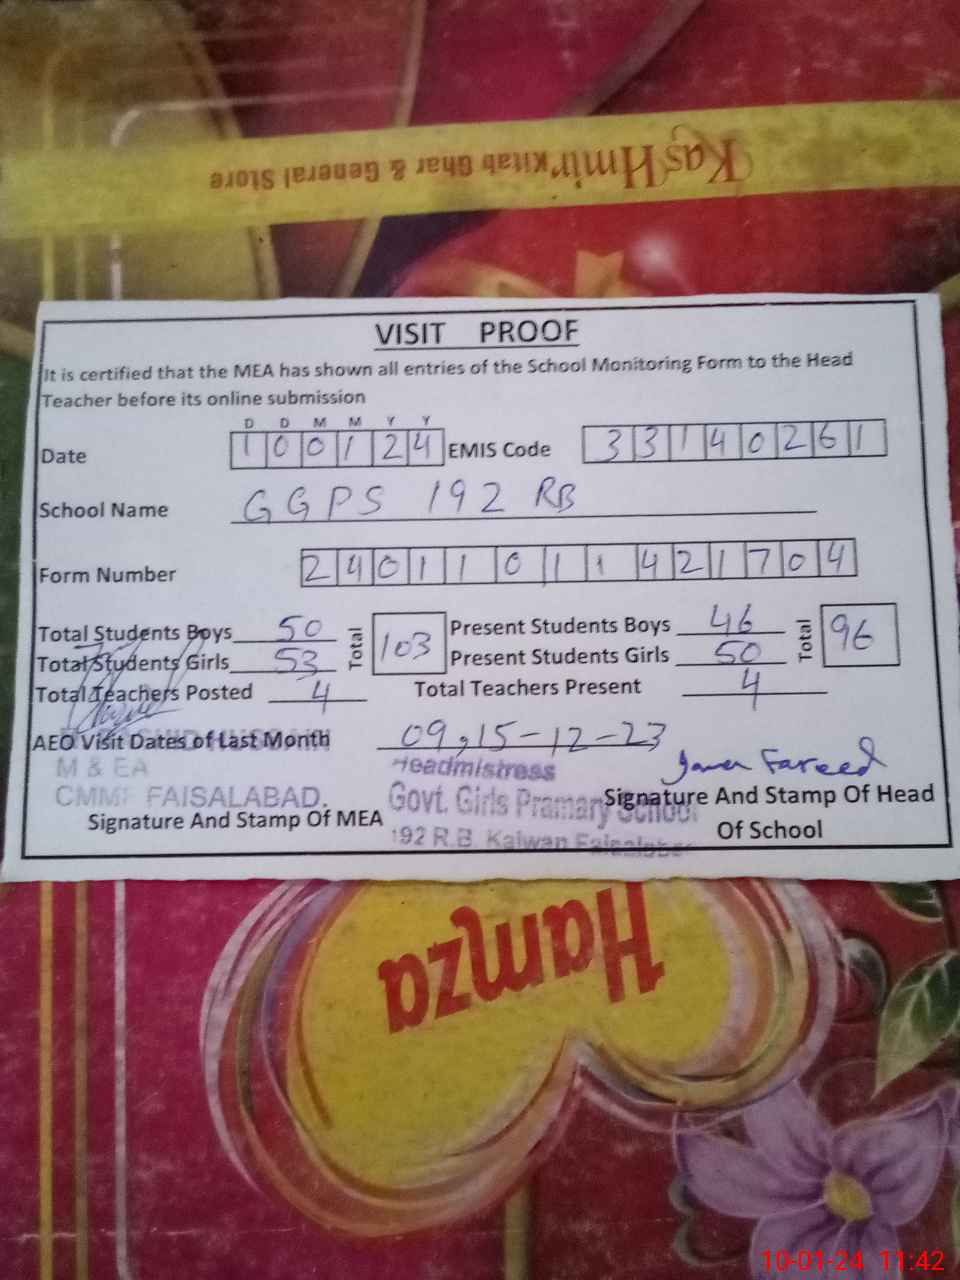 KasHmir Kitab Ghar & General Store
VISIT PROOF
It is certified that the MEA has shown all entries of the School Monitoring Form to the Head
Teacher before its online submission
D D M M Y Y
Date 1 0 0 1 2 4 EMIS Code 3 3 1 4 0 2 6 1
School Name GGPS 192 RB
Form Number 2 4 0 1 1 0 1 1 4 2 1 7 0 4
Total Students Boys 50 Total 103 Present Students Boys 46 Total 96
Total Students Girls 53 Present Students Girls 50
Total Teachers Posted 4 Total Teachers Present 4
AEO Visit Dates of Last Month 09,15-12-23
M & EA
CMMF FAISALABAD.
Signature And Stamp Of MEA
Headmistress
Govt. Girls Pramary School
192 R.B. Kalwan
Fareed
Signature And Stamp Of Head
Of School
Hamza
10-01-24 11:42